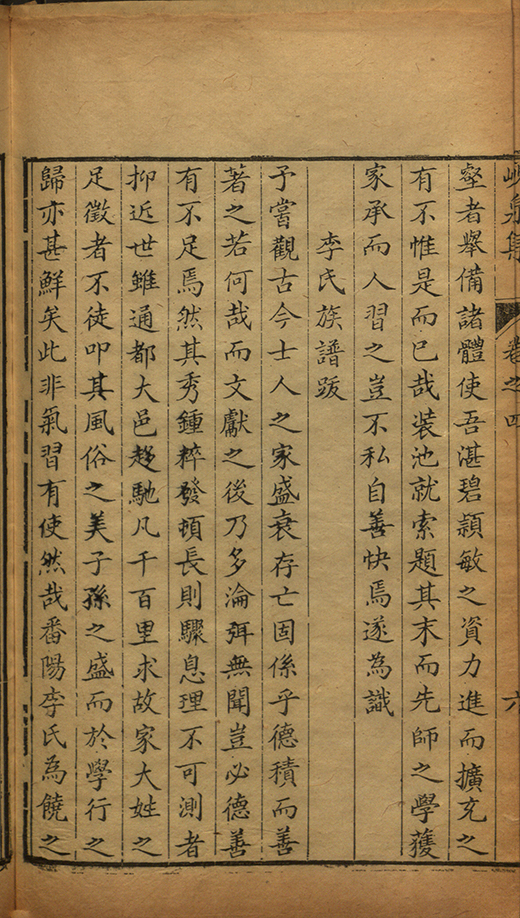 峴泉集 卷之四 六
壑者舉備諸體使吾湛碧穎敏之資力進而擴充之
有不惟是而已哉裝池就索題其末而先師之學獲
家承而人習之豈不私自善快焉遂為識
李氏族譜跋
予嘗觀古今士人之家盛衰存亡固係乎德積而善
著之若何哉而文獻之後乃多淪弭無聞豈必德善
有不足焉然其秀鍾粹發頓長則驟息理不可測者
抑近世雖通都大邑趍馳凡千百里求故家大姓之
足徵者不徒叩其風俗之美子孫之盛而於學行之
歸亦甚鮮矣此非氣習有使然哉番陽李氏為饒之